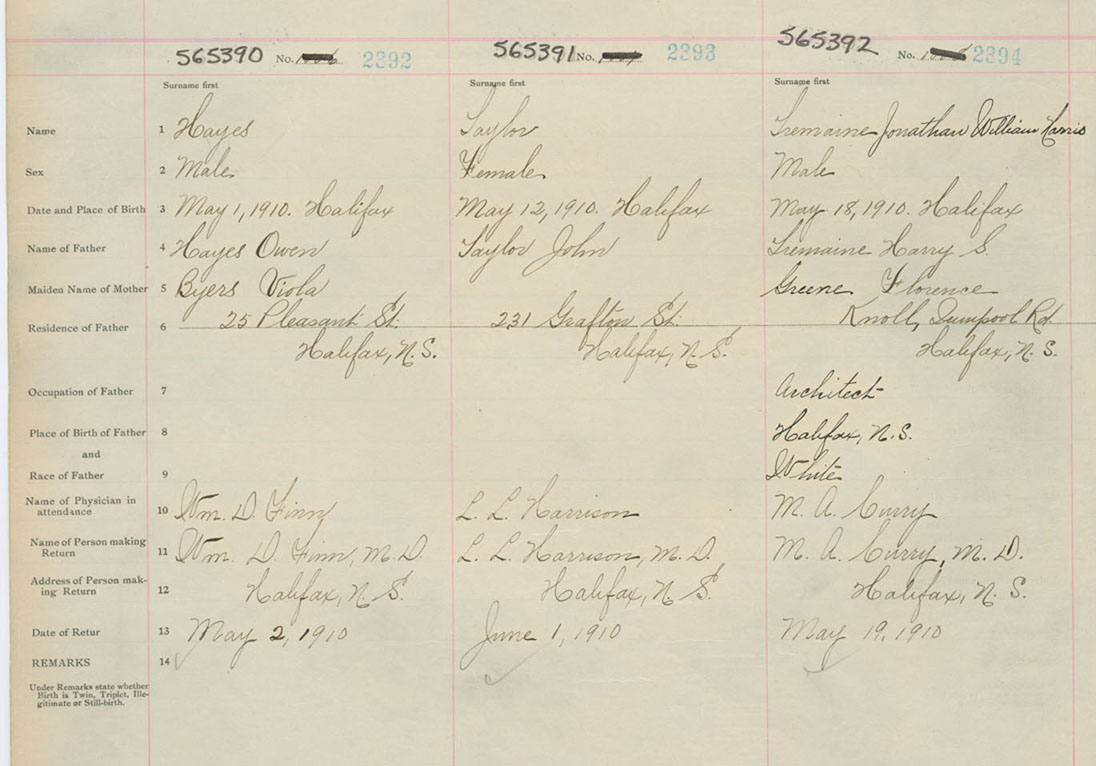 565390 No. 2392 565391 No. 2393 565392 No. 2394
Surname first Surname first Surname first
Name 1 Hayes Taylor Tremaine Jonathan William Harris
Sex 2 Male Female Male
Date and Place of Birth 3 May 1, 1910. Halifax May 12, 1910. Halifax May 18, 1910. Halifax
Name of Father 4 Hayes Owen Taylor John Tremaine Harry S.
Maiden Name of Mother 5 Byers Viola Greene Florence
Residence of Father 6 25 Pleasant St. 231 Grafton St. Knoll, Rd.
Halifax, N.S. Halifax, N.S. Halifax, N.S.
Occupation of Father 7 Architect
Place of Birth of Father 8 Halifax, N.S.
and
Race of Father 9 White
Name of Physician in
attendance 10 Wm. D. Finn L. L. Harrison M. A. Curry
Name of Person making
Return 11 Wm. D. Finn, M.D. L. L. Harrison, M.D. M. A. Curry, M.D.
Address of Person mak-
ing Return 12 Halifax, N.S. Halifax, N.S. Halifax, N.S.
Date of Retur 13 May 2, 1910 June 1, 1910 May 19, 1910
REMARKS 14
Under Remarks state whether
Birth is Twin, Triplet, Ille-
gitimate or Still-birth.